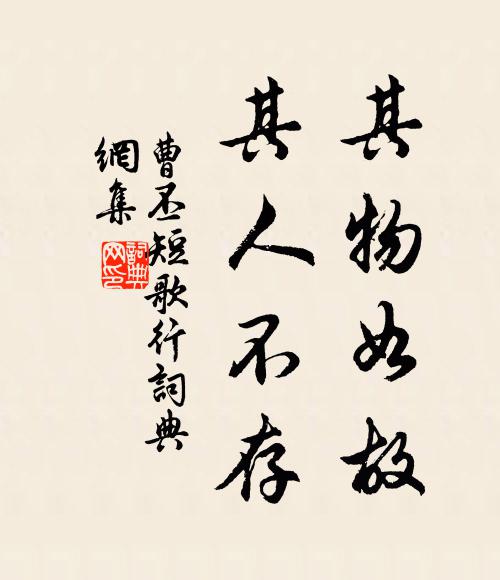 其物如故
其人不存
曹丕短歌行詞典
網集
詞典网印